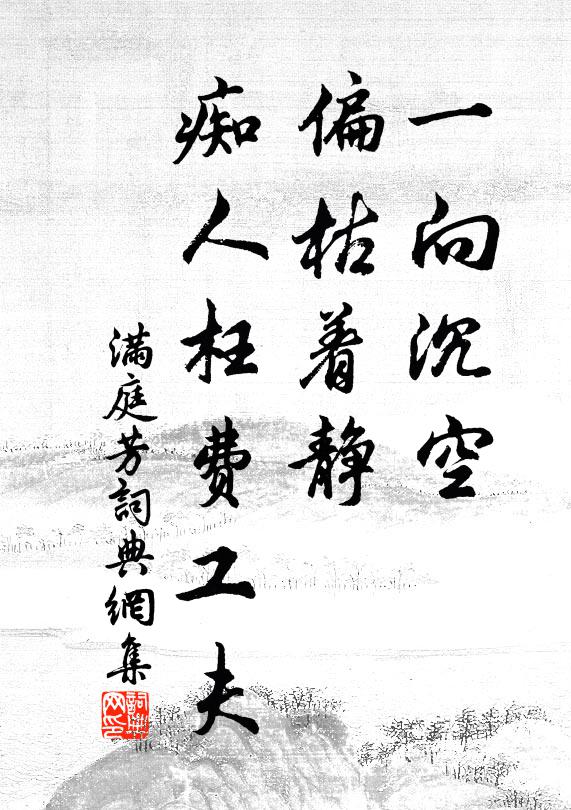 一向沉空
偏枯着静
痴人枉费工夫
满庭芳詞典網集